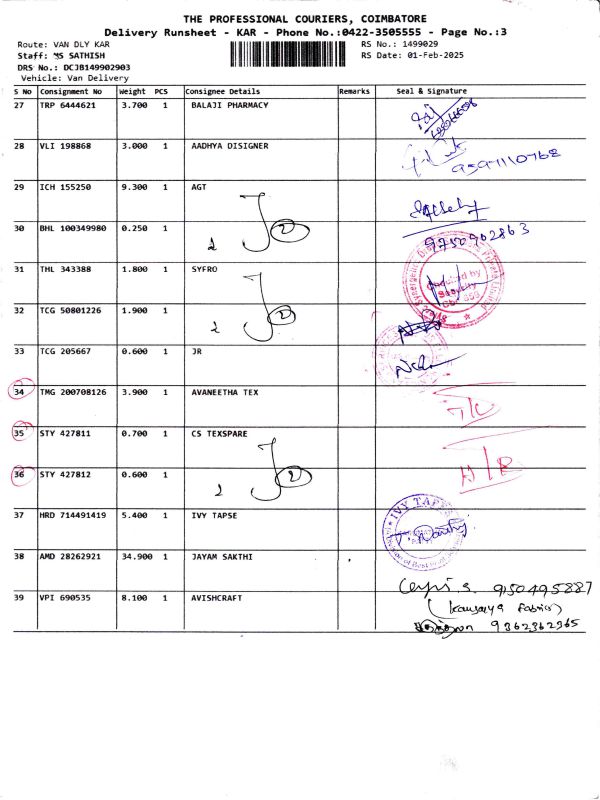 THE PROFESSIONAL COURIERS, COIMBATORE
Delivery Runsheet - KAR - Phone No.:0422-3505555 - Page No.:3
Route: VAN DLY KAR RS No.: 1499029
Staff: MS SATHISH RS Date: 01-Feb-2025
DRS No.: DCJB149902903
Vehicle: Van Delivery
S No Consignment No Weight PCS Consignee Details Remarks Seal & Signature
27 TRP 6444621 3.700 1 BALAJI PHARMACY
28 VLI 198868 3.000 1 AADHYA DISIGNER
9597110762
29 ICH 155250 9.300 1 AGT
2 2
30 BHL 100349980 0.250 1
9750902863
31 THL 343388 1.800 1 SYFRO
Received by
Security
2 2
32 TCG 50801226 1.900 1
33 TCG 205667 0.600 1 JR
34 TMG 200708126 3.900 1 AVANEETHA TEX
35 STY 427811 0.700 1 CS TEXSPARE
36 STY 427812 0.600 1
2 2
37 HRD 714491419 5.400 1 IVY TAPSE
IVY TAPES
38 AMD 28262921 34.900 1 JAYAM SAKTHI
9150495887
39 VPI 690535 8.100 1 AVISHCRAFT
9362362365